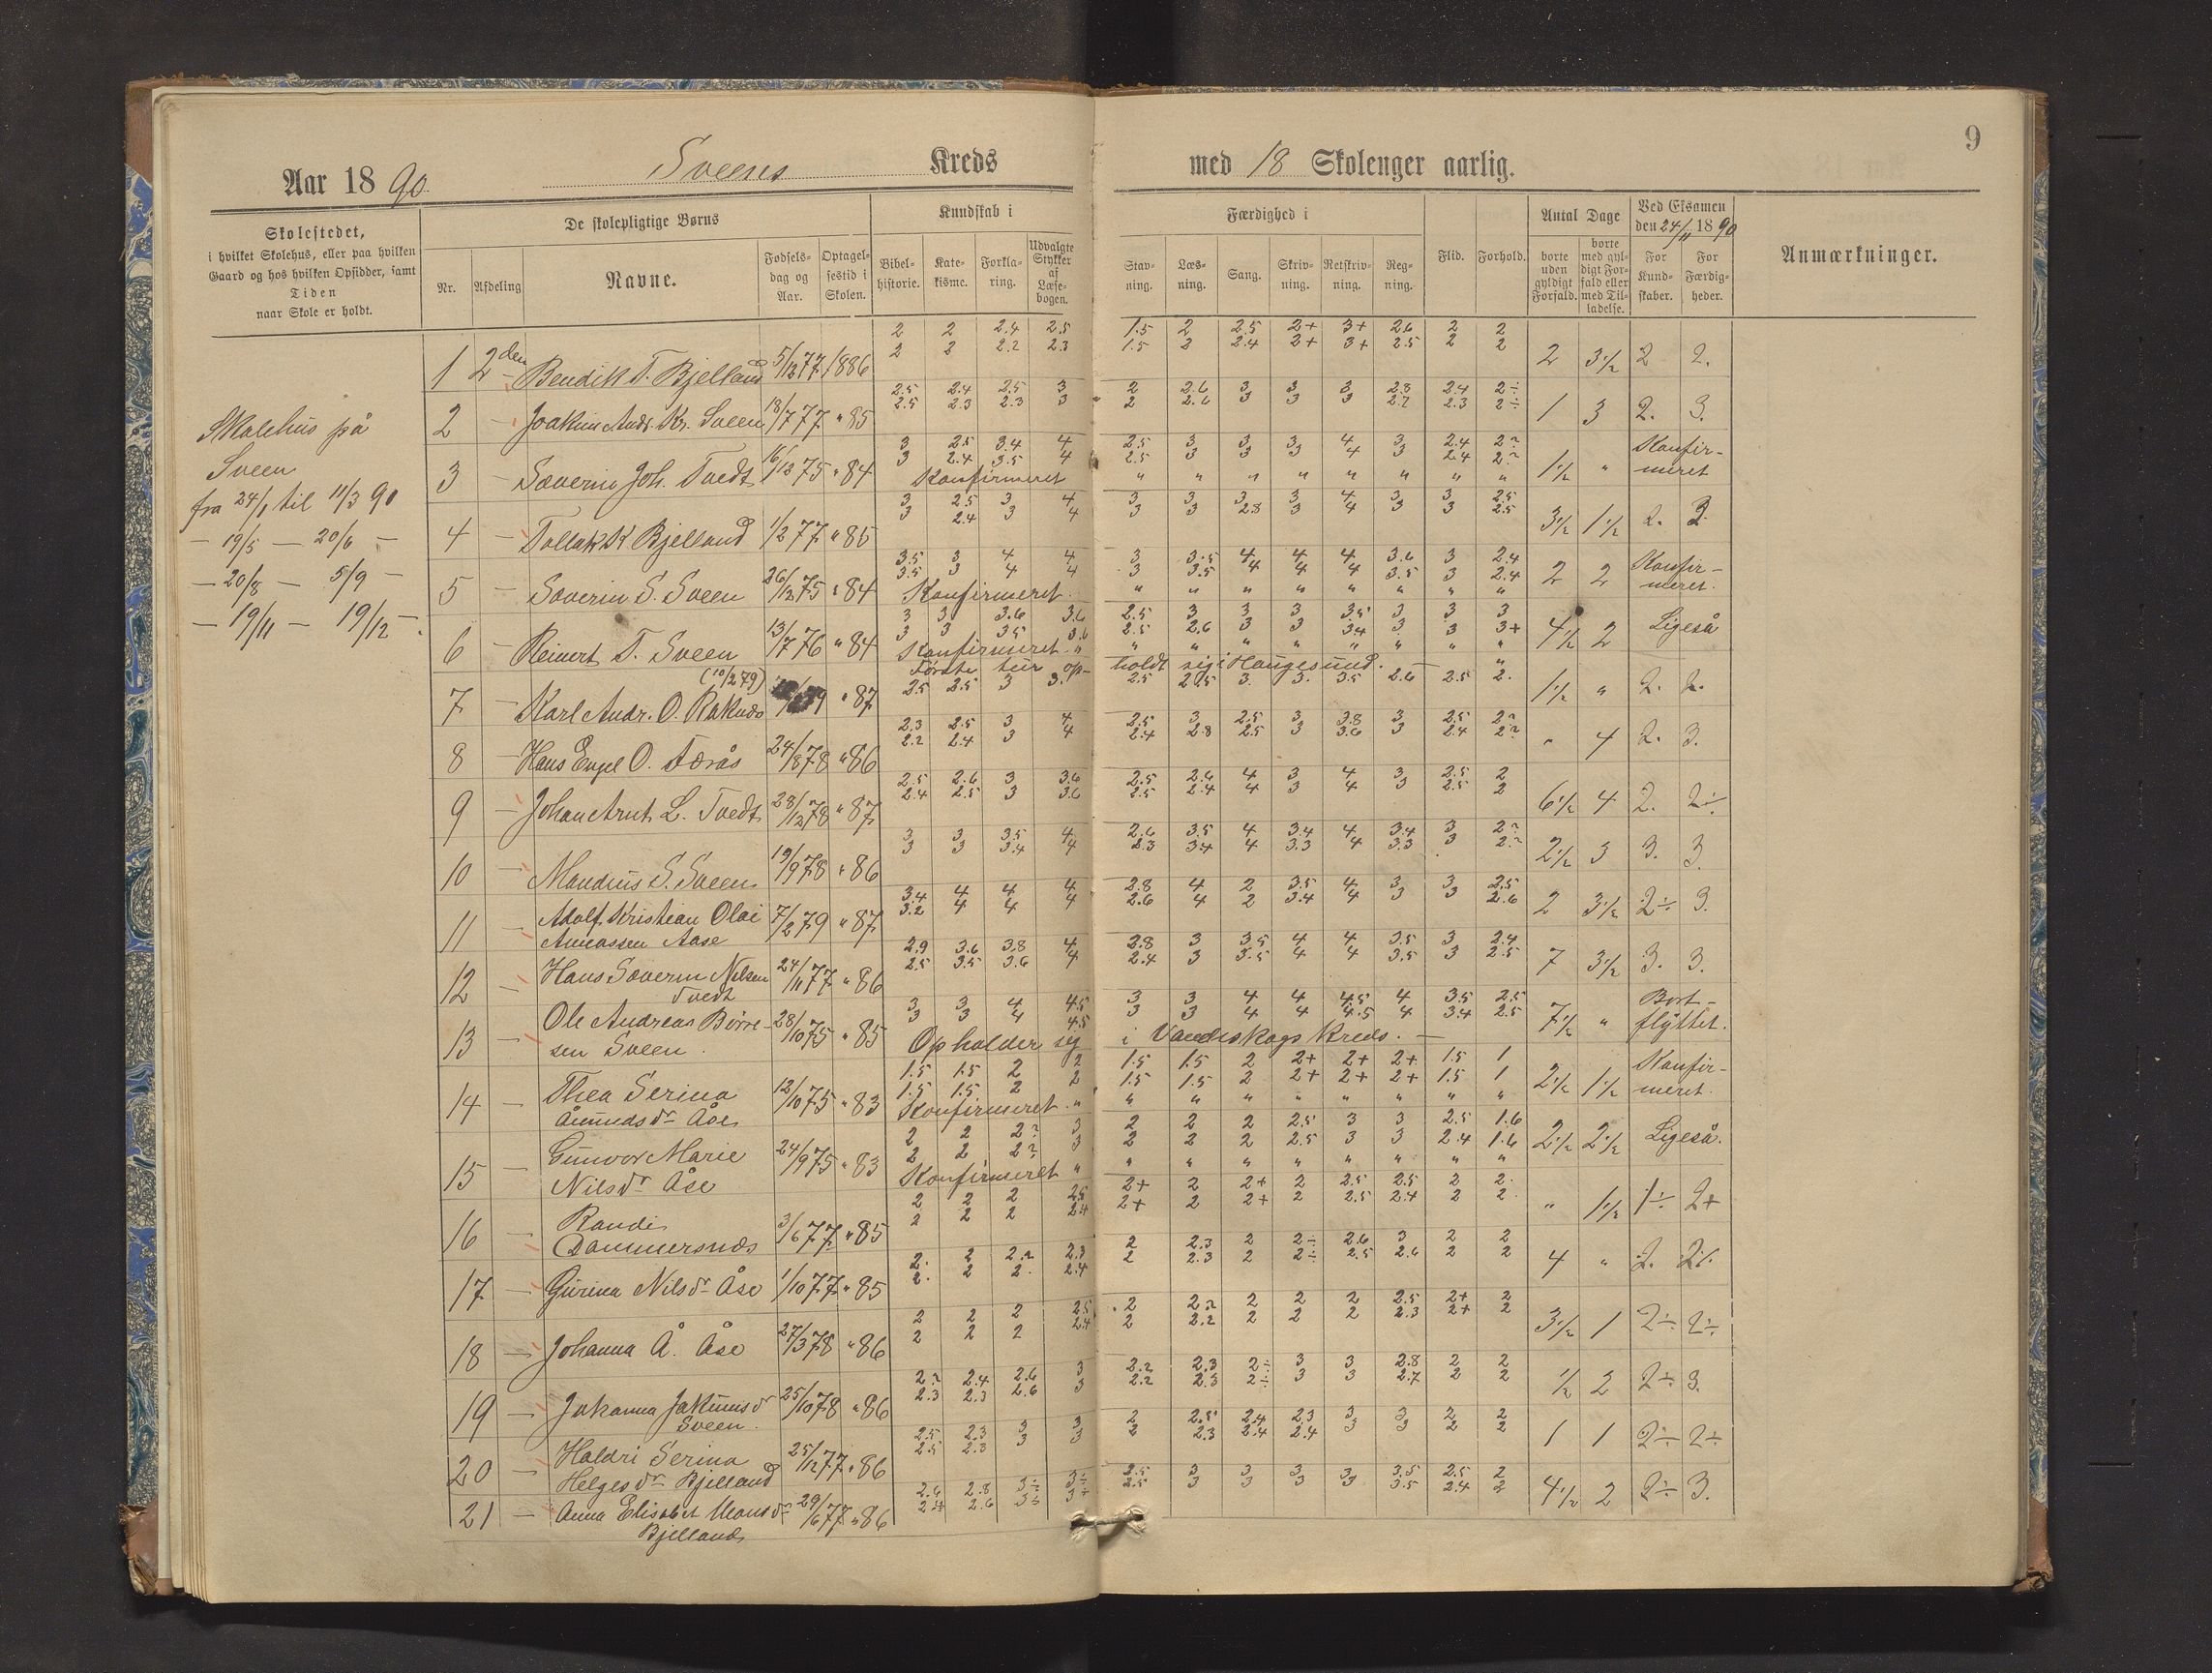 9
Aar 1890. Sveens Kreds med 18 Skolenger aarlig.
Skolestedet,
i hvilket Skolehus, eller paa hvilken
Gaard og hos hvilken Opsidder, samt
Tiden
naar Skole er holdt.
De skolepligtige Børns
Nr.
Afdeling
Navne.
Fødsels-
dag og
Aar.
Optagel-
sestid i
Skolen.
Kundskab i
Bibel-
historie.
Kate-
kisme.
Forkla-
ring.
Udvalgte
Stykker
af
Læse-
bogen.
Færdighed i
Stav-
ning.
Læs-
ning.
Sang.
Skriv-
ning.
Retskriv-
ning.
Reg-
ning.
Flid.
Forhold.
Antal Dage
borte
uden
gyldigt
Forfald.
borte
med gyl-
digt For-
fald eller
med Til-
ladelse.
Ved Eksamen
den 24/11 1890
For
Kund-
skaber.
For
Færdig-
heder.
Anmærkninger.
Skolehus på
Sveen
fra 24/1 til 11/3 90
— 19/5 — 20/6 —
— 20/8 — 5/9 —
— 19/11 — 19/12 —.
2 2 2.4 2.5 1.5 2 2.5 2+ 3+ 2.6 2 2
2 2 2.2 2.3 1.5 2 2.4 2+ 3+ 2.5 2 2
1 2den Bendik T. Bjelland 5/12 77 1886 2 3½ 2 2.
2.5 2.4 2.5 3 2 2.6 3 3 3 2.8 2.4 2÷
2.5 2.3 2.3 3 2 2.6 3 3 3 2.7 2.3 2÷
2 — Joakim Andr. Kr. Sveen 18/7 77 " 85 1 3 2. 3.
3 2.5 3.4 4 2.5 3 3 3 4 3 2.4 2?
3 2.4 3.5 4 2.5 3 3 3 4 3 2.4 2?
3 — Søverin Joh. Tvedt 16/12 75 " 84 Konfirmeret " " " " " " " " 1½ " Konfir-
meret
3 2.5 3 4 3 3 3 3 4 3 3 2.5
3 2.4 3 4 3 3 2.8 3 4 3 3 2.5
4 — Tollak K Bjelland 1/2 77 " 85 3½ 1½ 2. 3.
3.5 3 4 4 3 3.5 4 4 4 3.6 3 2.4
3.5 3 4 4 3 3.5 4 4 4 3.5 3 2.4
5 — Søverin S. Sveen 26/12 75 " 84 Konfirmeret. " " " " " " " " 2 2 Konfir-
meret.
3 3 3.6 3.6 2.5 3 3 3 3.5 3 3 3
3 3 3.5 3.6 2.5 2.6 3 3 3.4 3 3 3+
6 — Reinert T. Sveen 13/7 76 " 84 Konfirmeret " " " " " " " " " 4½ 2 Ligeså
Første tein op- holdt sig i Haugesund. — "
(10/2 79)
2.5 2.5 3 3. 2.5 2.5 3. 3. 3.5 2.6 2.5 2.
7 — Karl Andr. O. Røknes " 87 1½ " 2. 2.
2.3 2.5 3 4 2.5 3 2.5 3 3.8 3 2.5 2?
2.2 2.4 3 4 2.4 2.8 2.5 3 3.6 3 2.4 2?
8 — Hans Engel O. Færås 24/8 78 " 86 " 4 2. 3.
2.5 2.6 3 3.6 2.5 2.6 4 3 4 3 2.5 2
2.4 2.5 3 3.6 2.5 2.4 4 3 4 3 2.5 2
9 — Johan Arnt L. Tvedt 28/12 78 " 87 6½ 4 2. 2÷
3 3 3.5 4 2.6 3.5 4 3.4 4 3.4 3 2?
3 3 3.4 4 2.3 3.4 4 3.3 4 3.3 3 2?
10 — Mandius S. Sveen 19/9 78 " 86 2½ 3 3. 3.
3.4 4 4 4 2.8 4 2 3.5 4 3 3 2.5
3.2 4 4 4 2.6 4 2 3.4 4 3 3 2.6
Adolf Kristian Olai
11 — Aase 7/2 79 " 87 2 3½ 2÷ 3.
2.9 3.6 3.8 4 2.8 3 3.5 4 4 3.5 3 2.4
2.5 3.5 3.6 4 2.4 3 3.5 4 4 3.5 3 2.5
12 — Hans Søverin Nilsen
Tvedt 24/11 77 " 86 7 3½ 3. 3.
3 3 4 4.5 3 3 4 4 4.5 4 3.5 2.5
3 3 4 4.5 3 3 4 4 4.5 4 3.4 2.5
13 — Ole Andreas Børre-
sen Sveen. 28/10 75 " 85 Opholder sig i Vandskogs Kreds. — 7½ " Bort-
flyttet.
1.5 1.5 2 2 1.5 1.5 2 2+ 2+ 2+ 1.5 1
1.5 1.5 2 2 1.5 1.5 2 2+ 2+ 2+ 1.5 1
14 — Thea Serina
Åmundsdr Åse 12/10 75 " 83 Konfirmeret. " " " " " " " " " 2½ 1½ Konfir-
meret.
2 2 2? 3 2 2 2 2.5 3 3 2.5 1.6
2 2 2? 3 2 2 2 2.5 3 3 2.4 1.6
15 — Gunvor Marie
Nilsdr Åse 24/9 75 " 83 Konfirmeret " " " " " " " " " 2½ 2½ Ligeså.
2 2 2 2.5 2+ 2 2+ 2 2.5 2.5 2 2.
2 2 2 2.4 2+ 2 2+ 2 2.5 2.4 2 2.
16 — Randi
Dommersnæs 3/6 77 " 85 " 1½ 1÷ 2+
2. 2 2.2 2.3 2 2.3 2 2÷ 2.6 3 2 2
2. 2 2. 2.4 2 2.3 2 2÷ 2.5 2.6 2 2
17 — Gurina Nilsdr Åse 1/10 77 " 85 4 " 2. 2÷
2 2 2 2.5 2 2.2 2 2 2 2.5 2+ 2
2 2 2 2.4 2 2.2 2 2 2 2.3 2+ 2
18 — Johanna Å. Åse 27/3 78 " 86 3½ 1 2÷ 2÷
2.2 2.4 2.6 3 2.2 2.3 2÷ 3 3 2.8 2 2
2.3 2.3 2.6 3 2.2 2.3 2÷ 3 3 2.7 2 2
19 — Johanna Jakimsdr
Sveen. 25/10 78 " 86 ½ 2 2÷ 3.
2.5 2.3 3 3 2 2.5 2.4 2.3 3 3 2 2
2.5 2.3 3 3 2 2.3 2.4 2.4 3 3 2 2
20 — Haldri Serina
Helgesdr Bjelland 25/12 77 " 86 1 1 2÷ 2÷
2.6 2.8 3÷ 3÷ 2.5 3 3 3 3 3.5 2.5 2
2.4 2.6 3÷ 3÷ 2.5 3 3 3 3 3.5 2.4 2
21 — Anna Elisabet Monsdr
Bjelland 29/6 77 " 86 4½ 2 2÷ 3.